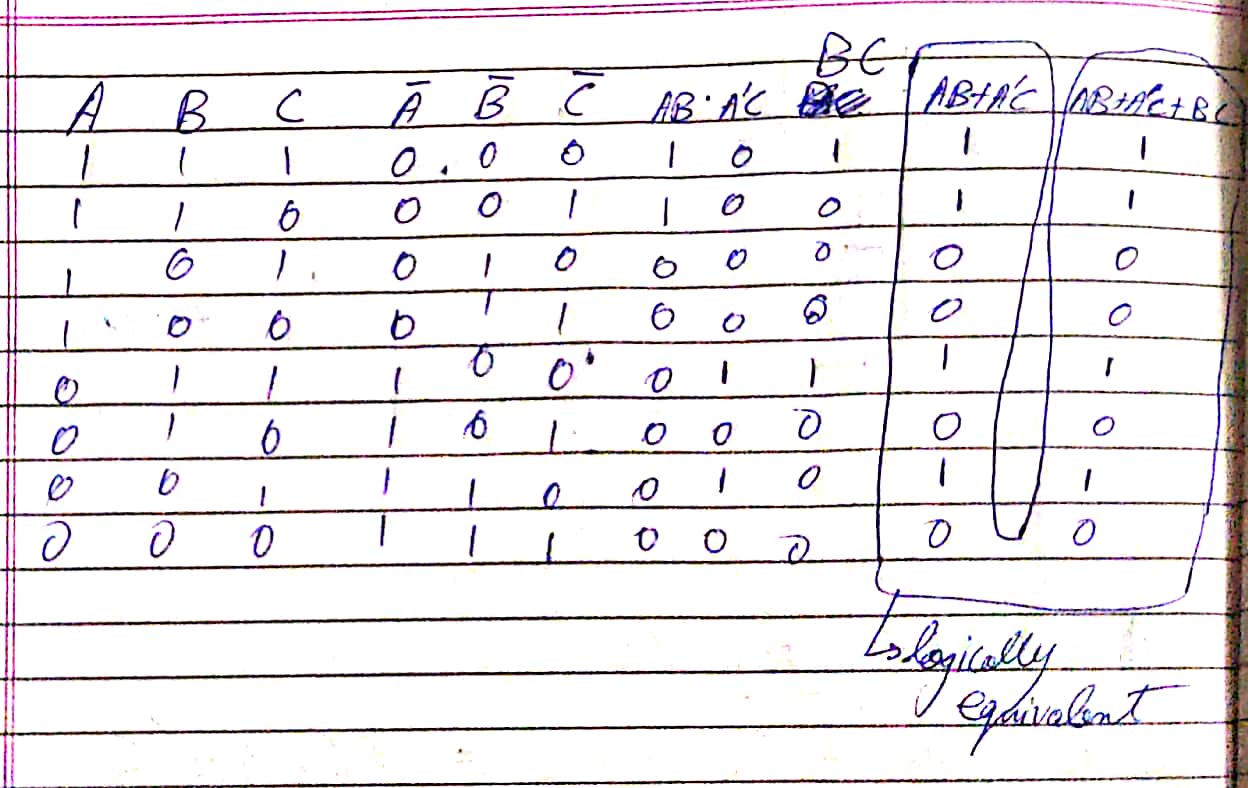 A B C Ā B̄ C̄ AB A'C BC AB+A'C AB+A'C+BC
1 1 1 0 0 0 1 0 1 1 1
1 1 0 0 0 1 1 0 0 1 1
1 0 1 0 1 0 0 0 0 0 0
1 0 0 0 1 1 0 0 0 0 0
0 1 1 1 0 0 0 1 1 1 1
0 1 0 1 0 1 0 0 0 0 0
0 0 1 1 1 0 0 1 0 1 1
0 0 0 1 1 1 0 0 0 0 0
logically
equivalent